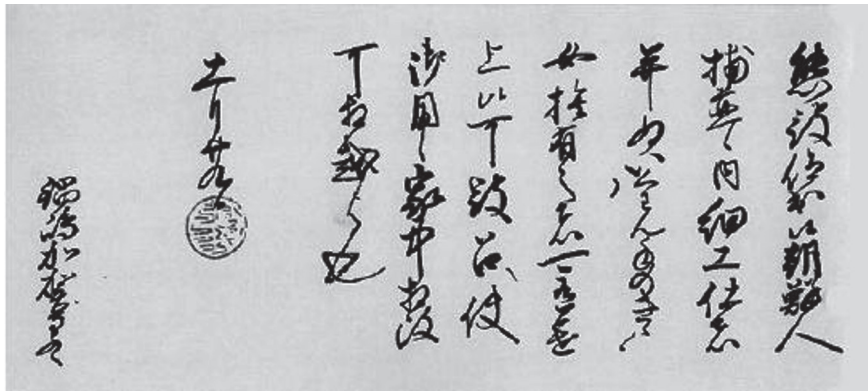 態被 候朝鮮人
捕置候内細工仕者
并ぬい 手のきゝ候
女於有之者可有進
上候可被召仕
御用候家中相改
可相越候也
十一月廿九日
鍋嶋加賀守とのへ